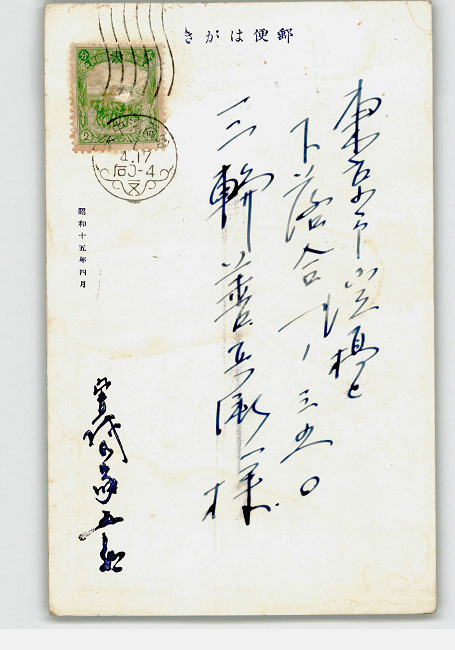 郵便はがき
東京市淀橋区
下落合一ノ三五〇
三輪善兵衛様
昭和十五年四月
2
4.17
后0-4